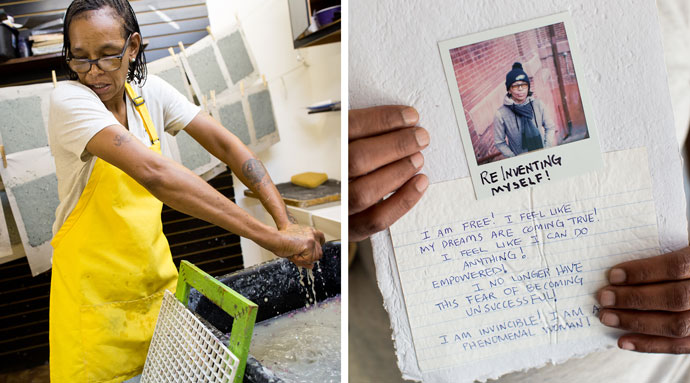 RE INVENTING
MYSELF!
I AM FREE! I FEEL LIKE
MY DREAMS ARE COMING TRUE!
I FEEL LIKE I CAN DO
ANYTHING!
EMPOWERED!
I NO LONGER HAVE
THIS FEAR OF BECOMING
UNSUCCESSFUL!
I AM INVINCIBLE! I AM A
PHENOMENAL WOMAN!